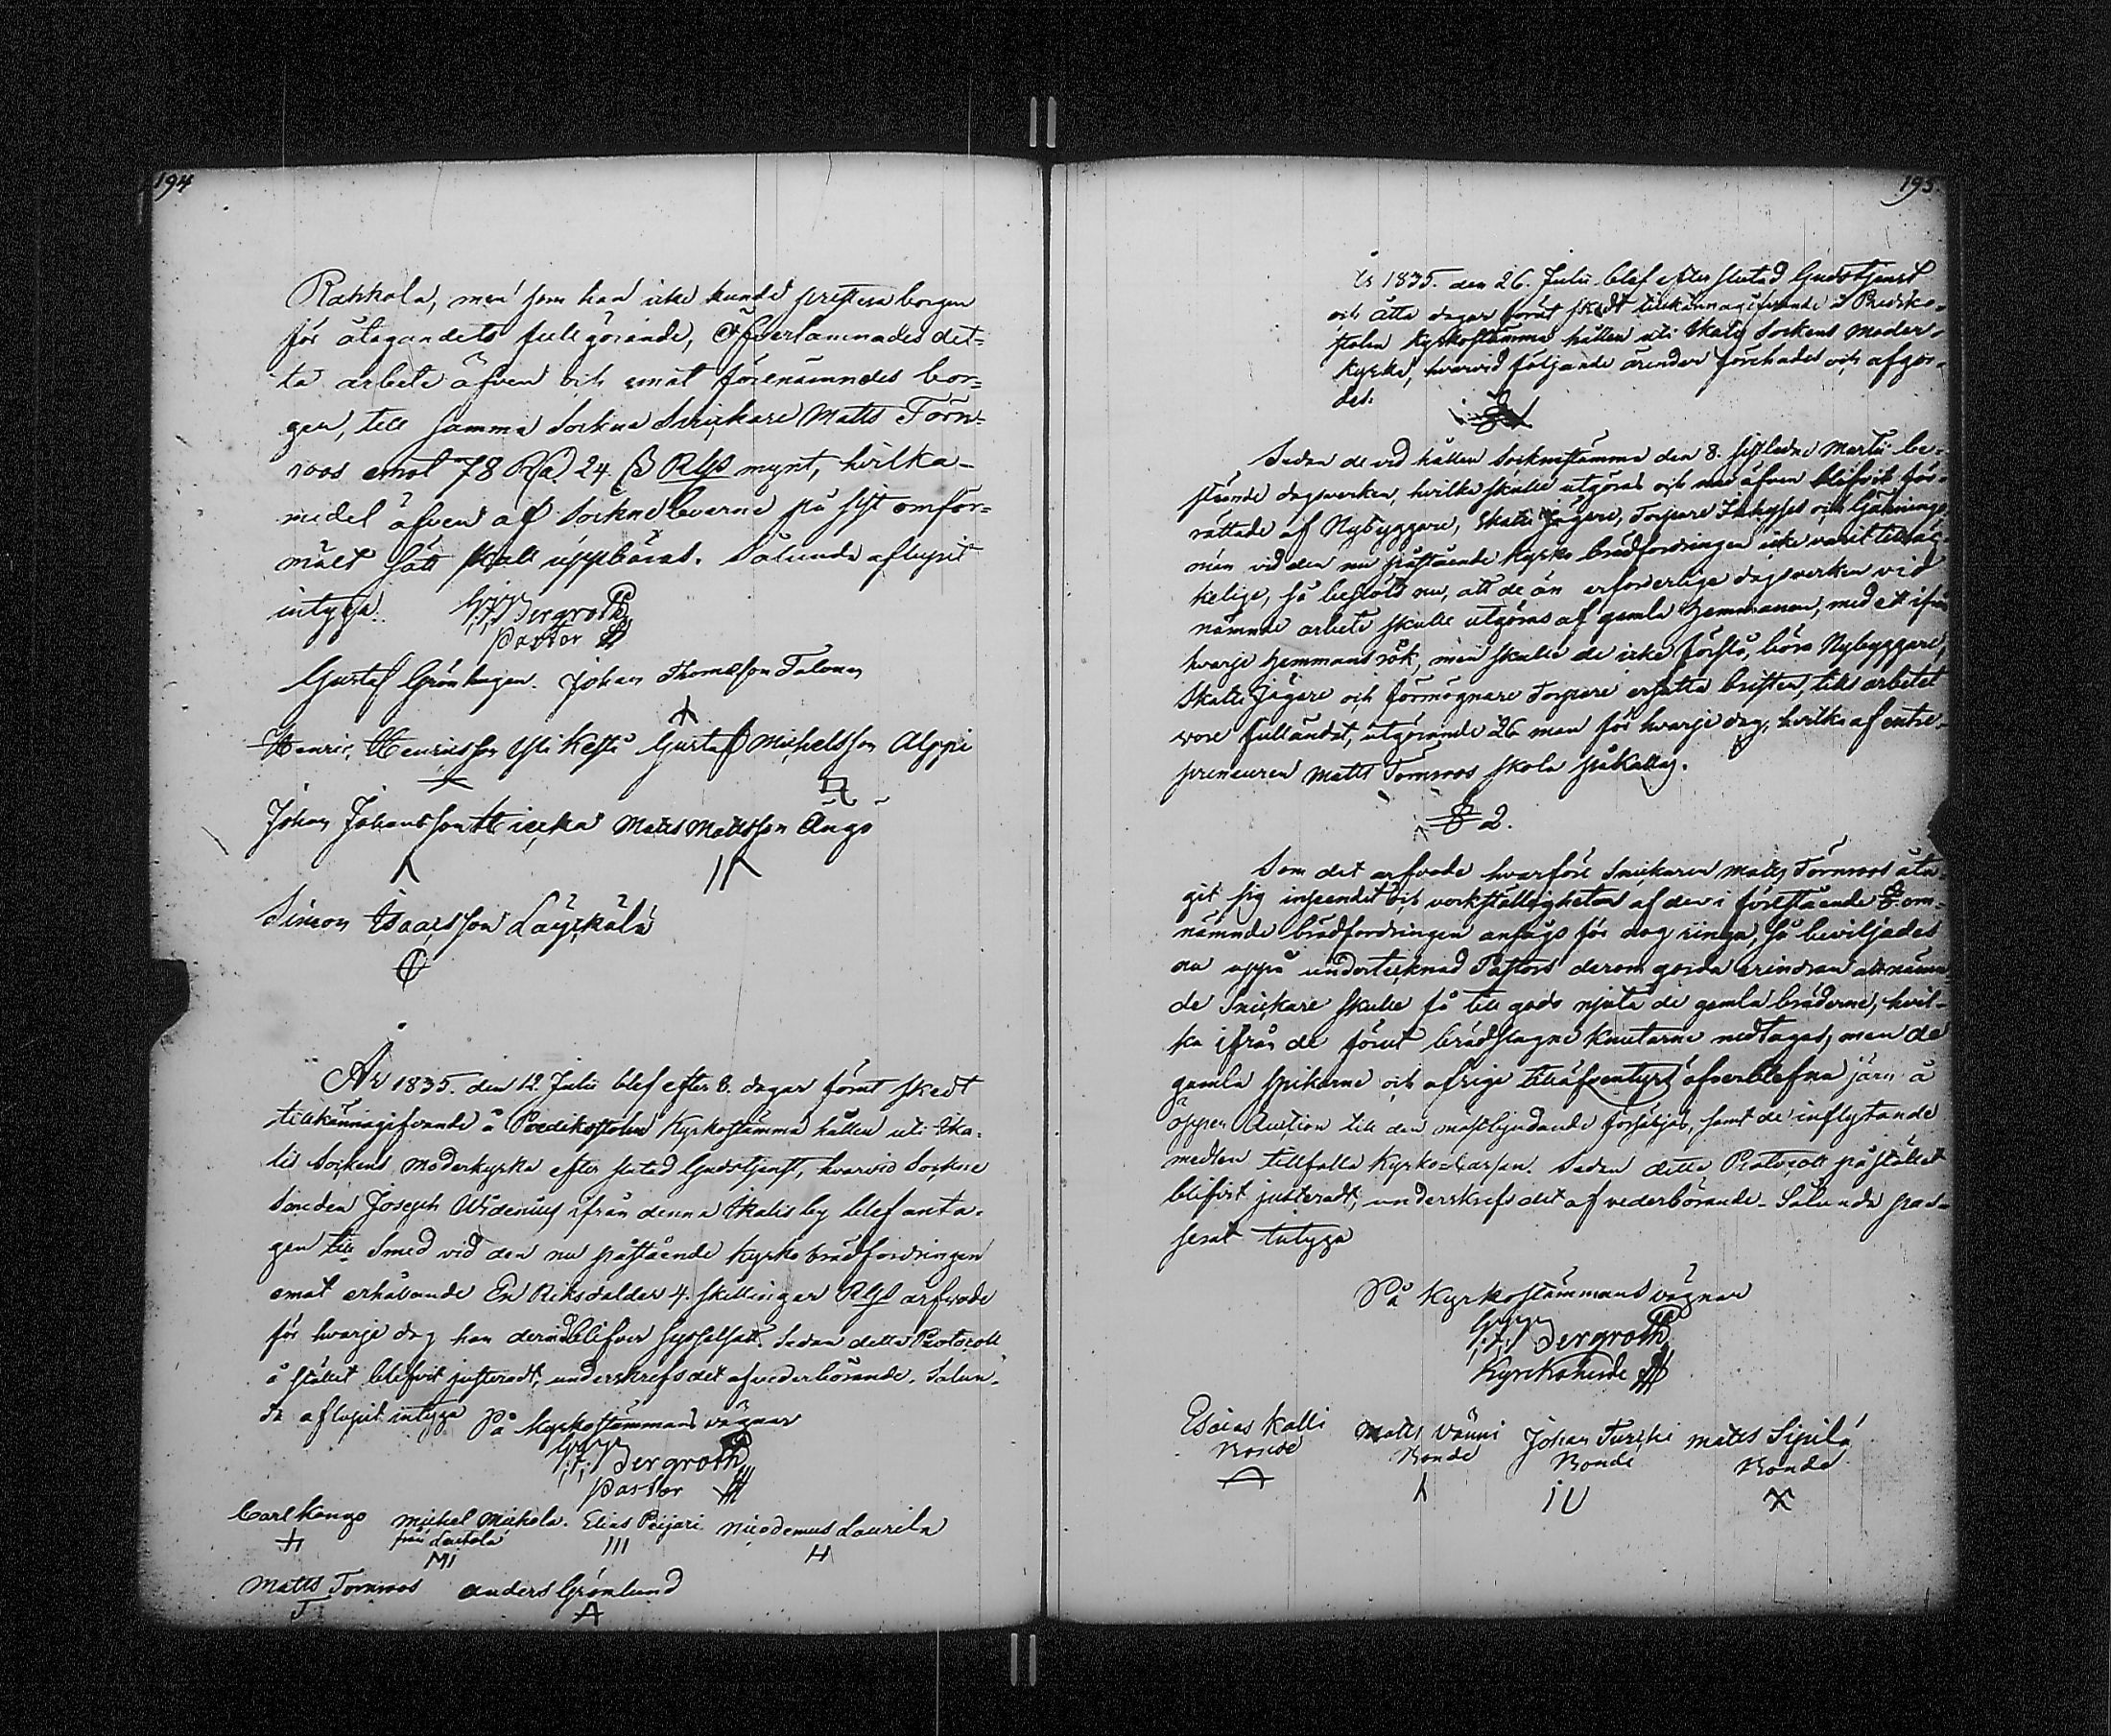 194
Rahkola, men som han icke kunde prestera borgen
för åtagandets fullgörande, Öfverlamnades det-
ta arbete äfven och emot förenämndes bor=
gen, till samma Sockne Snickare Matts Törn=
roos emot 78 Rd. 24. ß RGs mynt, hvilka
medel äfven af Socknebverne på sist omför=
mält sätt skall uppbäras. Sålunda aflupit
intyga.
Bergroth
Pastor
Gustaf Grönhagen. Johan Thomasson Talonen
Henric Henricsson Yli Kesti Gustaf Michelsson Alppi
Johan Johansson Hiecka Matts Mattsson Ångo
Simon Isaacsson Läyckälä
År 1835. den 12. Julii blef efter 8. dagar förut skedt
tillkännagifvande å Predikostolen Kyrkostämma hållen uti Ika-
lis Sockens Moderkyrka efter slutad Gudstjenst, hvarvid Sockne
Smeden Joseph Widenius ifrån denna Ikalis by blef anta-
gen till Smed vid den nu påstående Kyrko brädfodringen
emot erhållande En Riksdaler 4. skillingar RGs arfvode
för hvarje dag han dermed blifver sysselsatt. Sedan detta Protocoll
å stället blifvit justeradt, underskrefs det af vederbörande. Sålun-
da aflupit intyga På Kyrkostämmans vägnar
Bergroth
Pastor
Carl Kango Michel Mickola. Elias Peijari Nicodemus Laurila
från
MI III H
Matts Törnroos Anders Grönlund
T A
195.
År 1835. den 26. Julii blef efter slutad Gudstjenst
och åtta dagar förut skedt tillkännagifvande å Prediko-
stolen Kyrkostämma hållen uti Ikalis Sockens Moder-
kyrka, hvarvid följande ärender förehades och afgjor-
des:
§ 1
Sedan de vid hållen Sockenstämma den 8. sistledne Martii be-
stående dagsverken, hvilka skulle utgöras och nu äfven blifvit för-
rättade af Nybyggare, Skatte Jägare, Torpare Inhyses och
män vid den nu påstående Kyrko brädfodringen icke varit tillräc-
kelige, så beslöts nu, att de än erforderlige dagsverken vid
nämnde arbete skulle utgöras af gamla Hemmanen, med ett ifrån
hvarje Hemmans rök, men skulle de icke förslå, böra Nybyggare,
Skatte Jägare och förmögnare Torpare ersätta bristen, tills arbetet
vore fulländat, utgörande 26 man för hvarje dag, hvilka af entre-
preneuren Matts Törnroos skola påkallas.
§ 2.
Som det arfvode hvarföre Snickaren Matts Törnroos åta-
git sig inseendet och verkställigheten af den i förestående § om-
nämnde brädfodringen ansågs för dag ringa, så beviljades
nu uppå undertecknad Pastors derom gjorda erindran att nämn-
de Snickare skulle få till godo njuta de gamla bräderne, hvil-
ka ifrån de förut brädslagne knutarne nedtagas, men de
gamla spikarne och öfrige tilläfventyrs öfverblefna järn å
öppen Auction till den mestbjudande försäljas, samt de inflytande
medlen tillfalla Kyrko-Cassan. Sedan detta Protocoll på stället
blifvit justeradt, underskrefs det af vederbörande. Sålunda pas-
serat intyga
På Kyrkostämmans vägnar
Bergroth
Kyrckoherde
Esaias Kalli Matts Vänni Johan Turcki Matts Sipilä
Bonde Bonde Bonde Bonde
A IU X